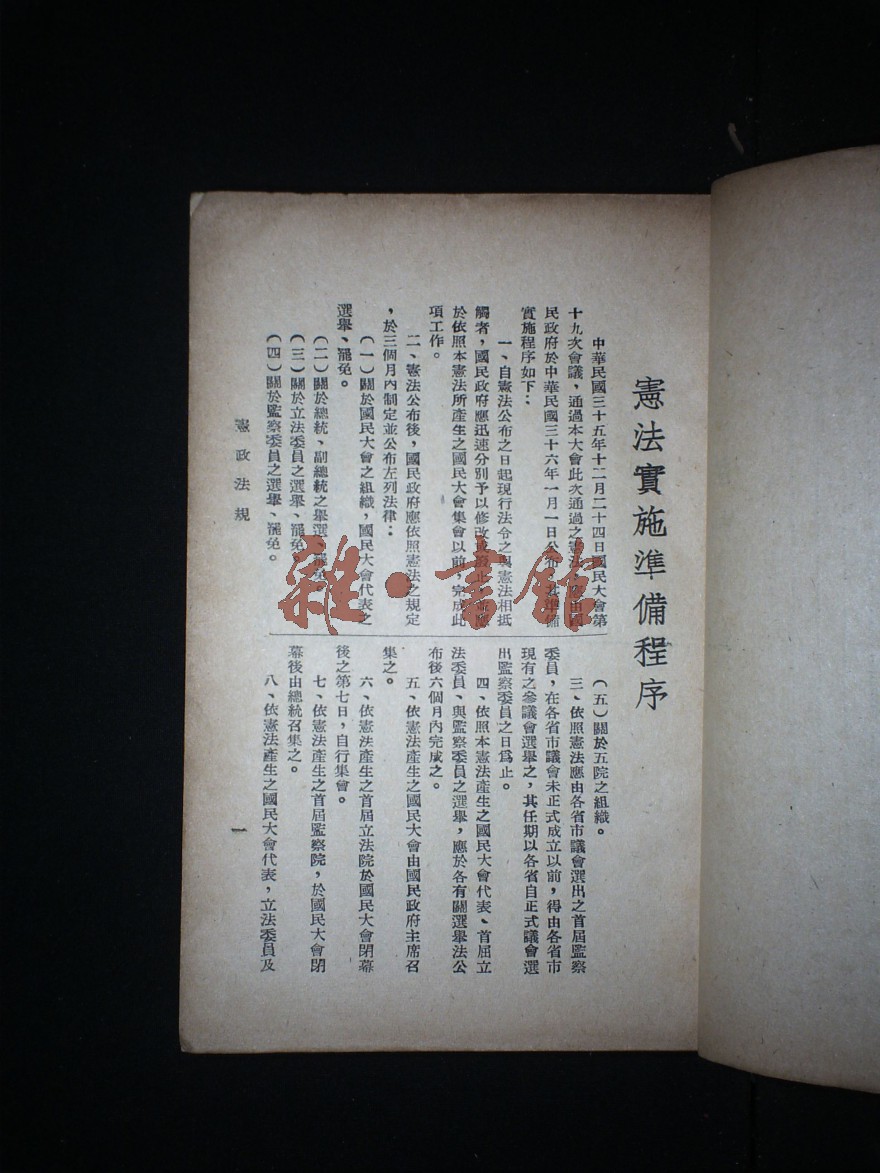 憲法實施準備程序
中華民國三十五年十二月二十四日國民大會第
十九次會議，通過本大會此次通過之憲法
民政府於中華民國三十六年一月一日公布
實施程序如下：
一、自憲法公布之日起現行法令之與憲法相抵
觸者，國民政府應迅速分別予以修改或廢止，並應
於依照本憲法所產生之國民大會集會以前，完成此
項工作。
二、憲法公布後，國民政府應依照憲法之規定
，於三個月內制定並公布左列法律：
（一）關於國民大會之組織，國民大會代表之
選舉、罷免。
（二）關於總統、副總統之舉選、罷免。
（三）關於立法委員之選舉、罷免。
（四）關於監察委員之選舉、罷免。
（五）關於五院之組織。
三、依照憲法應由各省市議會選出之首屆監察
委員，在各省市議會未正式成立以前，得由各省市
現有之參議會選舉之，其任期以各省自正式議會選
出監察委員之日為止。
四、依照本憲法產生之國民大會代表、首屆立
法委員、與監察委員之選舉，應於各有關選舉法公
布後六個月內完成之。
五、依憲法產生之國民大會由國民政府主席召
集之。
六、依憲法產生之首屆立法院於國民大會閉幕
後之第七日，自行集會。
七、依憲法產生之首屆監察院，於國民大會閉
幕後由總統召集之。
八、依憲法產生之國民大會代表，立法委員及
憲政法規
一
雜·書館